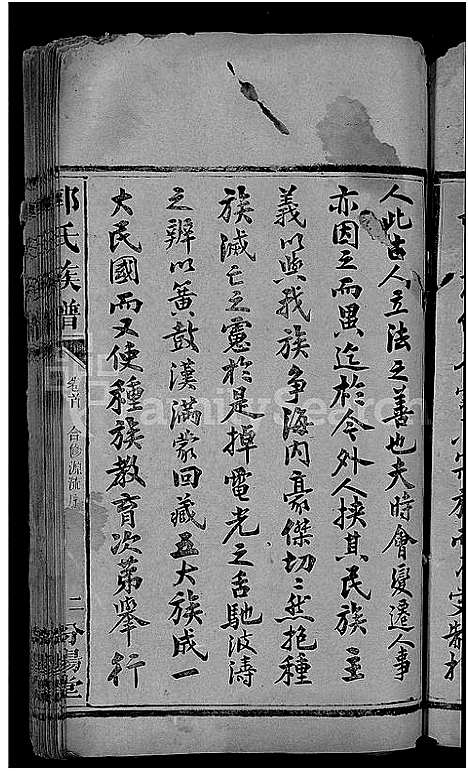 人此古人立法之善也夫時會變遷人事
亦因之而異迄於今外人挟其民族主
義以與我族争海内豪傑切〻然抱種
族滅亡之憲於是掉電光之舌馳波濤
之辨以簧鼓漢滿蒙回藏五大族成一
大民國而又使種族教育次第舉行
郭氏族譜
卷首 合修源流序 二
汾陽堂
FamilySearch